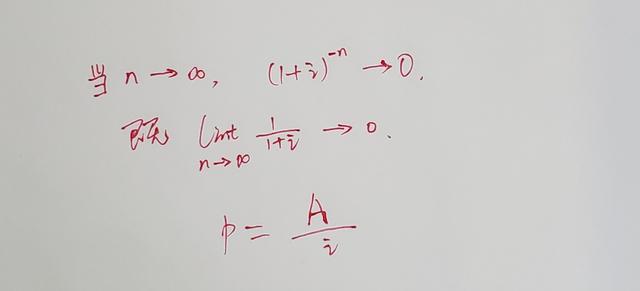 当 n → ∞, (1+i)^{-n} → 0.
lim_{n→∞} \frac{1}{1+i} → 0.
p = \frac{A}{i}